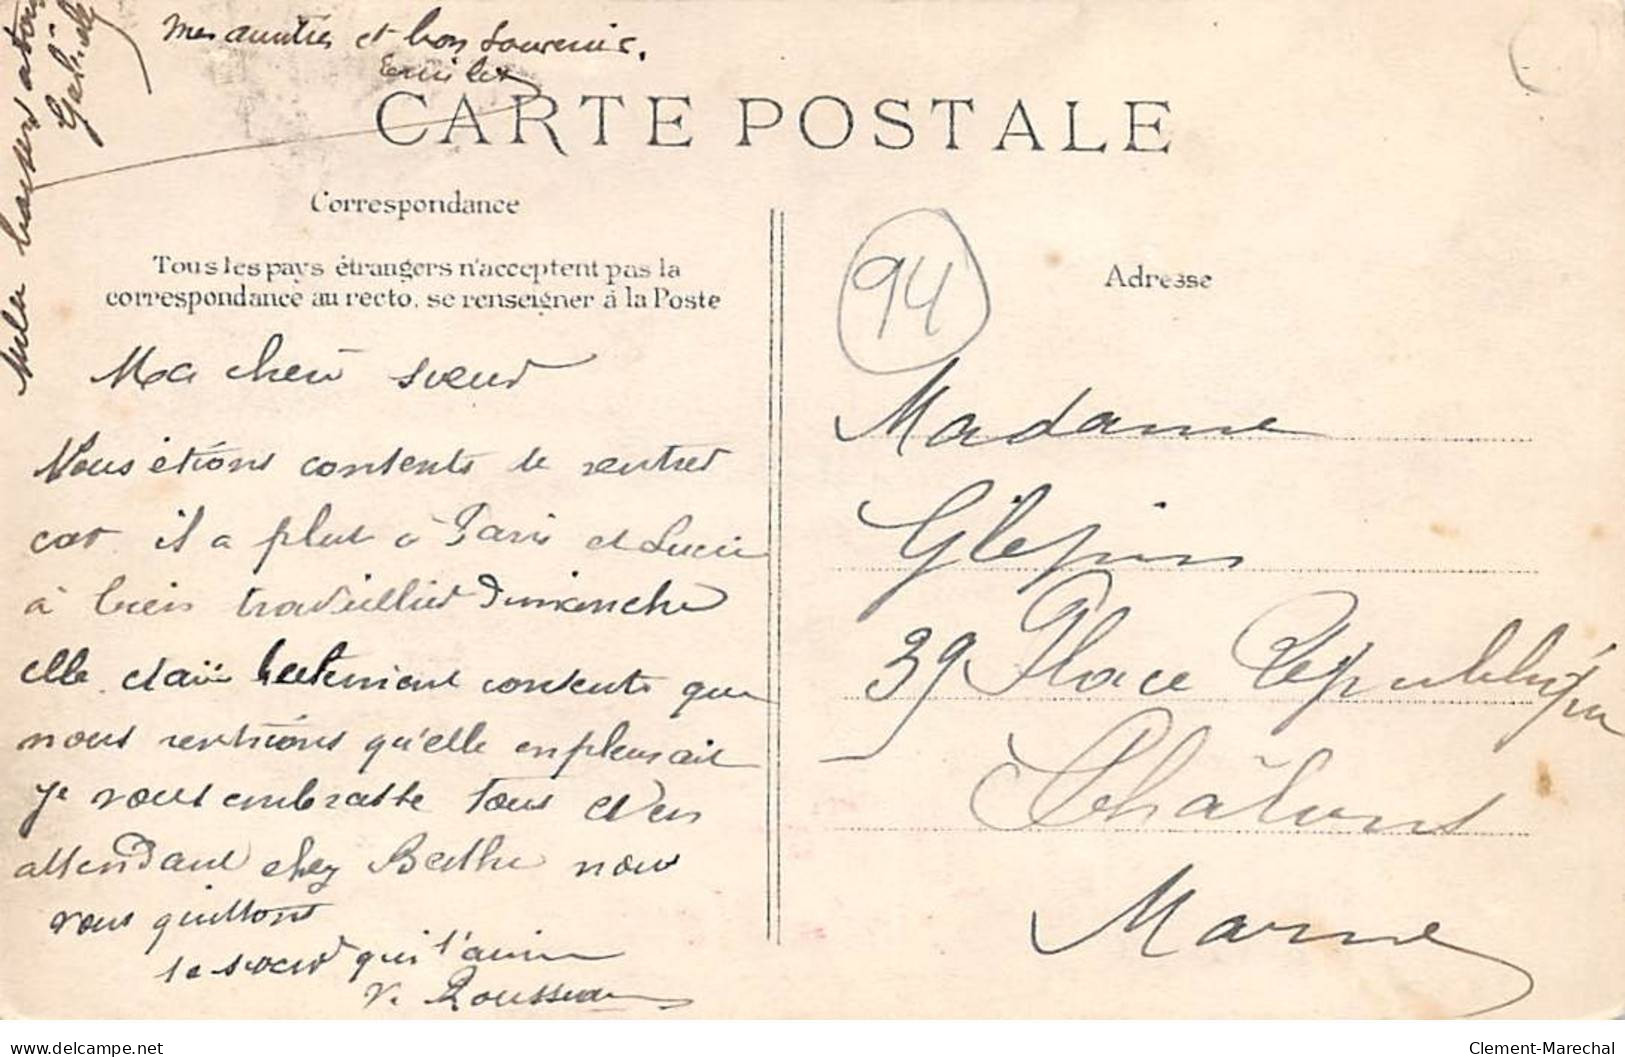 mes amitiés et bon souvenir.
CARTE POSTALE
Correspondance
Tous les pays étrangers n'acceptent pas la
correspondance au recto, se renseigner à la Poste
Adresse
94
Ma cheri soeur
Nous étions contents de rentrer
car il a plut à Paris et Lucie
à bien travaillier dimanche
elle etait contente que
nous rentrions qu'elle en pleurait
je vous embrasse tous et en
attendant chez Berthe nous
vous quittons
ta soeur qui t'aime
V. Rousseau
Madame
Glépin
39 Place République
Châlons
Marne
Mille baisers
Gabrielle
delcampe.net
Clement-Marechal